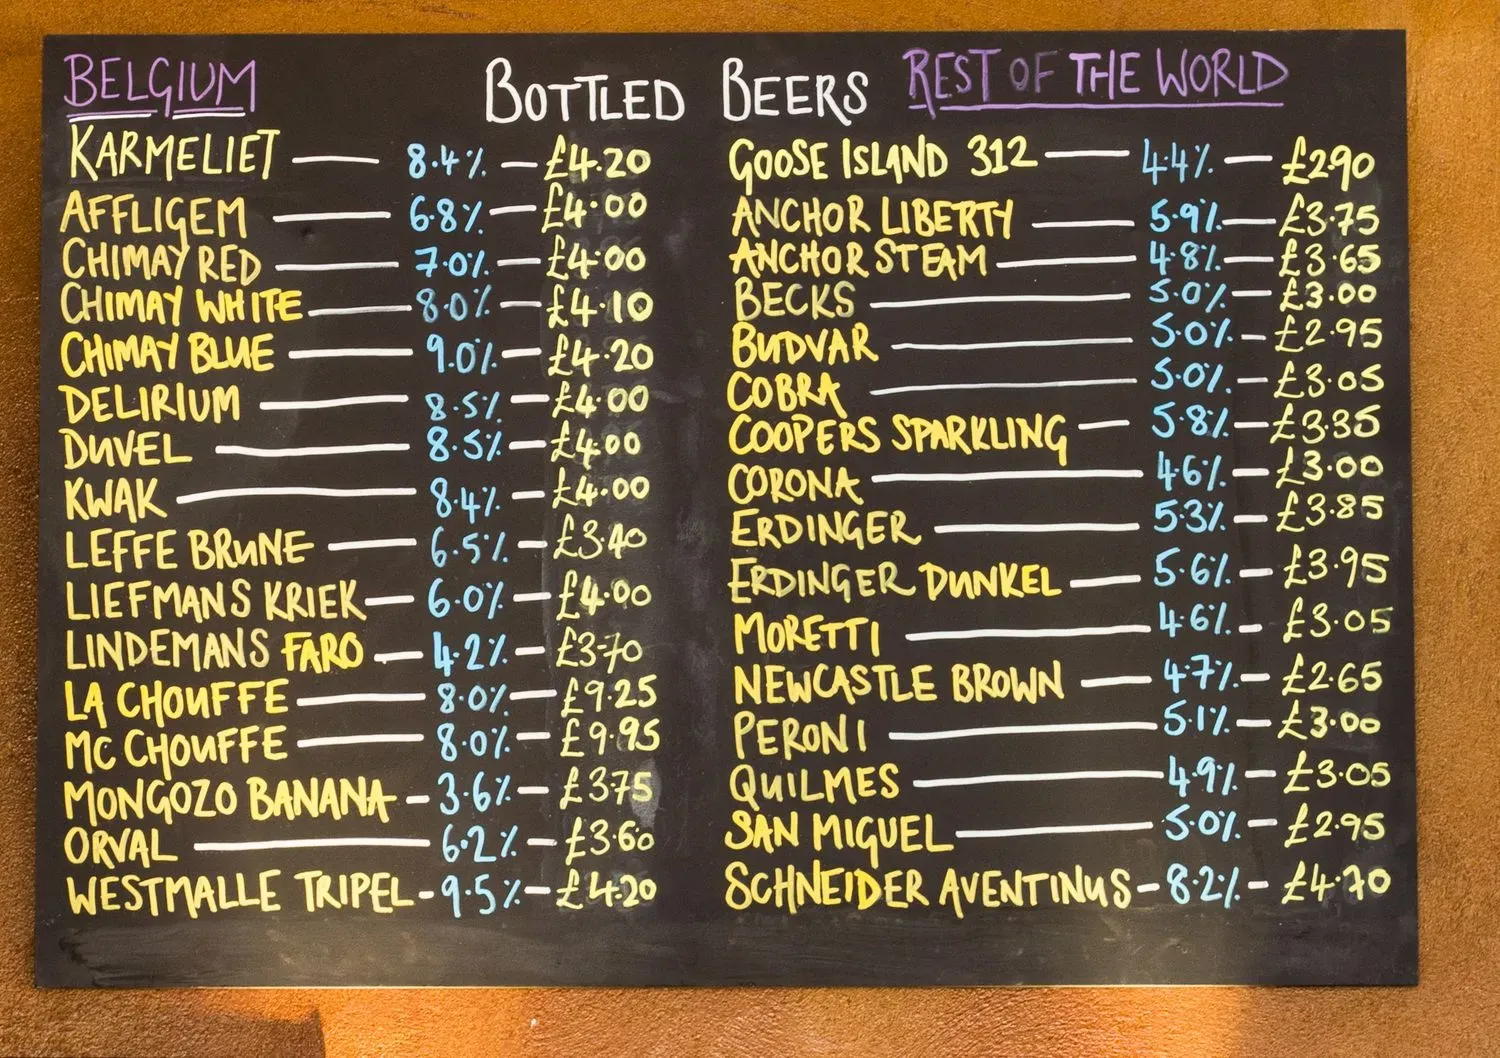 BELGIUM
BOTTLED BEERS
KARMELIET — 8.4% — £4.20
AFFLIGEM — 6.8% — £4.00
CHIMAY RED — 7.0% — £4.00
CHIMAY WHITE — 8.0% — £4.10
CHIMAY BLUE — 9.0% — £4.20
DELIRIUM — 8.5% — £4.00
DUVEL — 8.5% — £4.00
KWAK — 8.4% — £4.00
LEFFE BRUNE — 6.5% — £3.40
LIEFMANS KRIEK — 6.0% — £4.00
LINDEMANS FARO — 4.2% — £3.70
LA CHOUFFE — 8.0% — £9.25
MC CHOUFFE — 8.0% — £9.95
MONGOZO BANANA — 3.6% — £3.75
ORVAL — 6.2% — £3.60
WESTMALLE TRIPEL — 9.5% — £4.20
REST OF THE WORLD
GOOSE ISLAND 312 — 4.4% — £2.90
ANCHOR LIBERTY — 5.9% — £3.75
ANCHOR STEAM — 4.8% — £3.65
BECKS — 5.0% — £3.00
BUDVAR — 5.0% — £2.95
COBRA — 5.0% — £3.05
COOPERS SPARKLING — 5.8% — £3.35
CORONA — 4.6% — £3.00
ERDINGER — 5.3% — £3.85
ERDINGER DUNKEL — 5.6% — £3.95
MORETTI — 4.6% — £3.05
NEWCASTLE BROWN — 4.7% — £2.65
PERONI — 5.1% — £3.00
QUILMES — 4.9% — £3.05
SAN MIGUEL — 5.0% — £2.95
SCHNEIDER AVENTINUS — 8.2% — £4.70